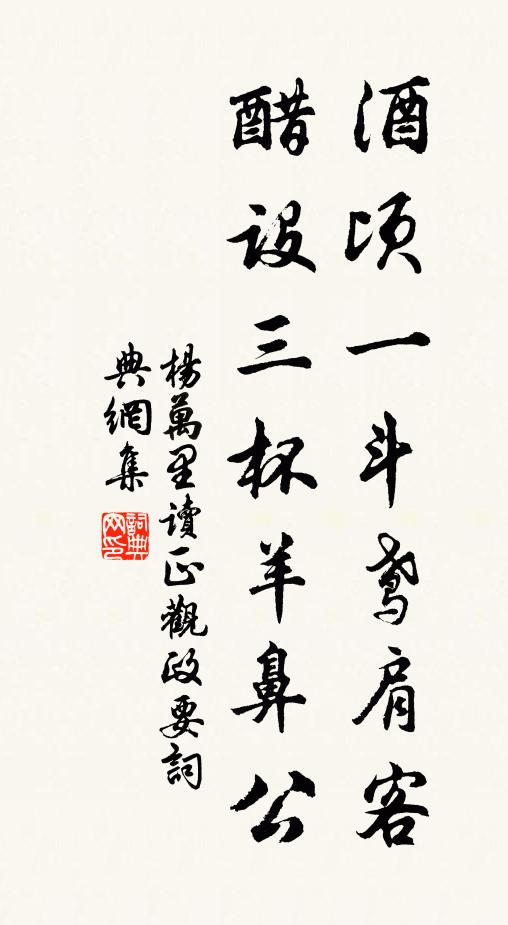 酒頃一斗鳶肩客
醋設三杯羊鼻公
楊萬里讀正觀政要詞
典網集
詞典
網印